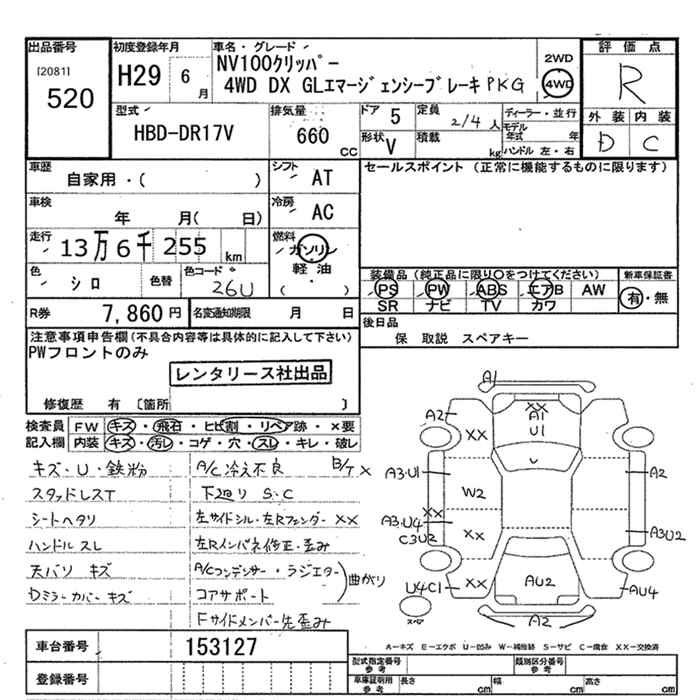 出品番号
[2081]
520
初度登録年月
H29 6 月
車名・グレード
NV100クリッパー
4WD DX GLエマージェンシーブレーキPKG
2WD
4WD
評価点
R
外装 内装
D C
型式
HBD-DR17V
排気量
660 CC
ドア 5
形状 V
定員 2/4 人
積載 kg
ディーラー・並行
モデル年式 年
ハンドル 左・右
車歴
自家用・( )
シフト AT
車検
年 月( 日)
冷房 AC
走行
13万6千255 km
燃料
ガソリン
軽油
( ・ )
色 シロ
色替
色コード 26U
R券 7,860円
名変通知期限 月 日
セールスポイント (正常に機能するものに限ります)
装備品(純正品に限り○をつけてください)
PS PW ABS エアB AW
SR ナビ TV カワ
新車保証書
有・無
後日品
保 取説 スペアキー
注意事項申告欄(不具合内容等は具体的に記入して下さい)
PWフロントのみ
レンタリース社出品
修復歴 有 〔箇所 〕
検査員記入欄
FW キズ・飛石・ヒビ割・リペア跡・×要
内装 キズ・汚レ・コゲ・穴・スレ・キレ・破レ
キズ・U・鉄粉
スタッドレスT
シートヘタリ
ハンドルスレ
天バリ キズ
Dミラーカバー キズ
A/C冷え不良 B/T×
下廻り S・C
左サイドシル・左Rフェンダー ××
左Rインパネ修正・歪み
A/Cコンデンサー・ラジエター
コアサポート
曲がり
Fサイドメンバー先歪み
A1
A2
××
××
A1
U1
A3・U1
W2
A2
A3・U4
××
C3U2
××
A3U2
U4C1
××
AU2
AU4
スペア
A2
A-キズ E-エクボ U-凹み W-補修跡 S-サビ C-腐食 XX-交換済
車台番号 153127
登録番号
型式指定番号 参考
類別区分番号 参考
車庫証明用 参考
長さ cm 幅 cm 高さ cm